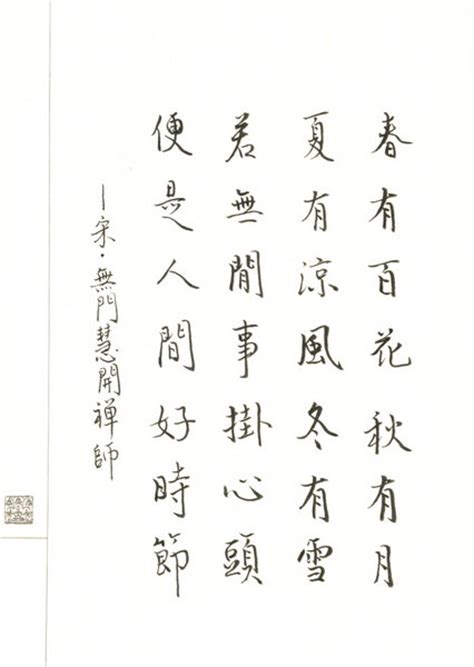 春有百花秋有月
夏有涼風冬有雪
若無閒事掛心頭
便是人間好時節
－宋·無門慧開禪師